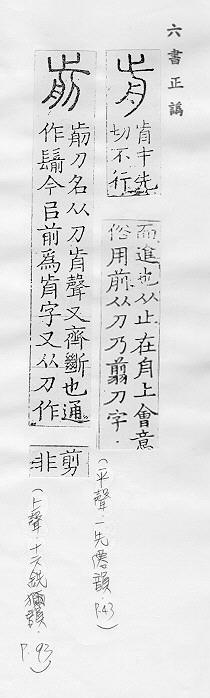 六書正譌
歬才先
切不行
而進也从止在舟上會意
俗用前从刀乃翦刀字.
(平聲.一先僊韻.P.43)
前刀名从刀歬聲又齊斷也通
作鬋今㠯前爲歬字又从刀作
剪
非
(上聲.十六銑獮韻.P.93)